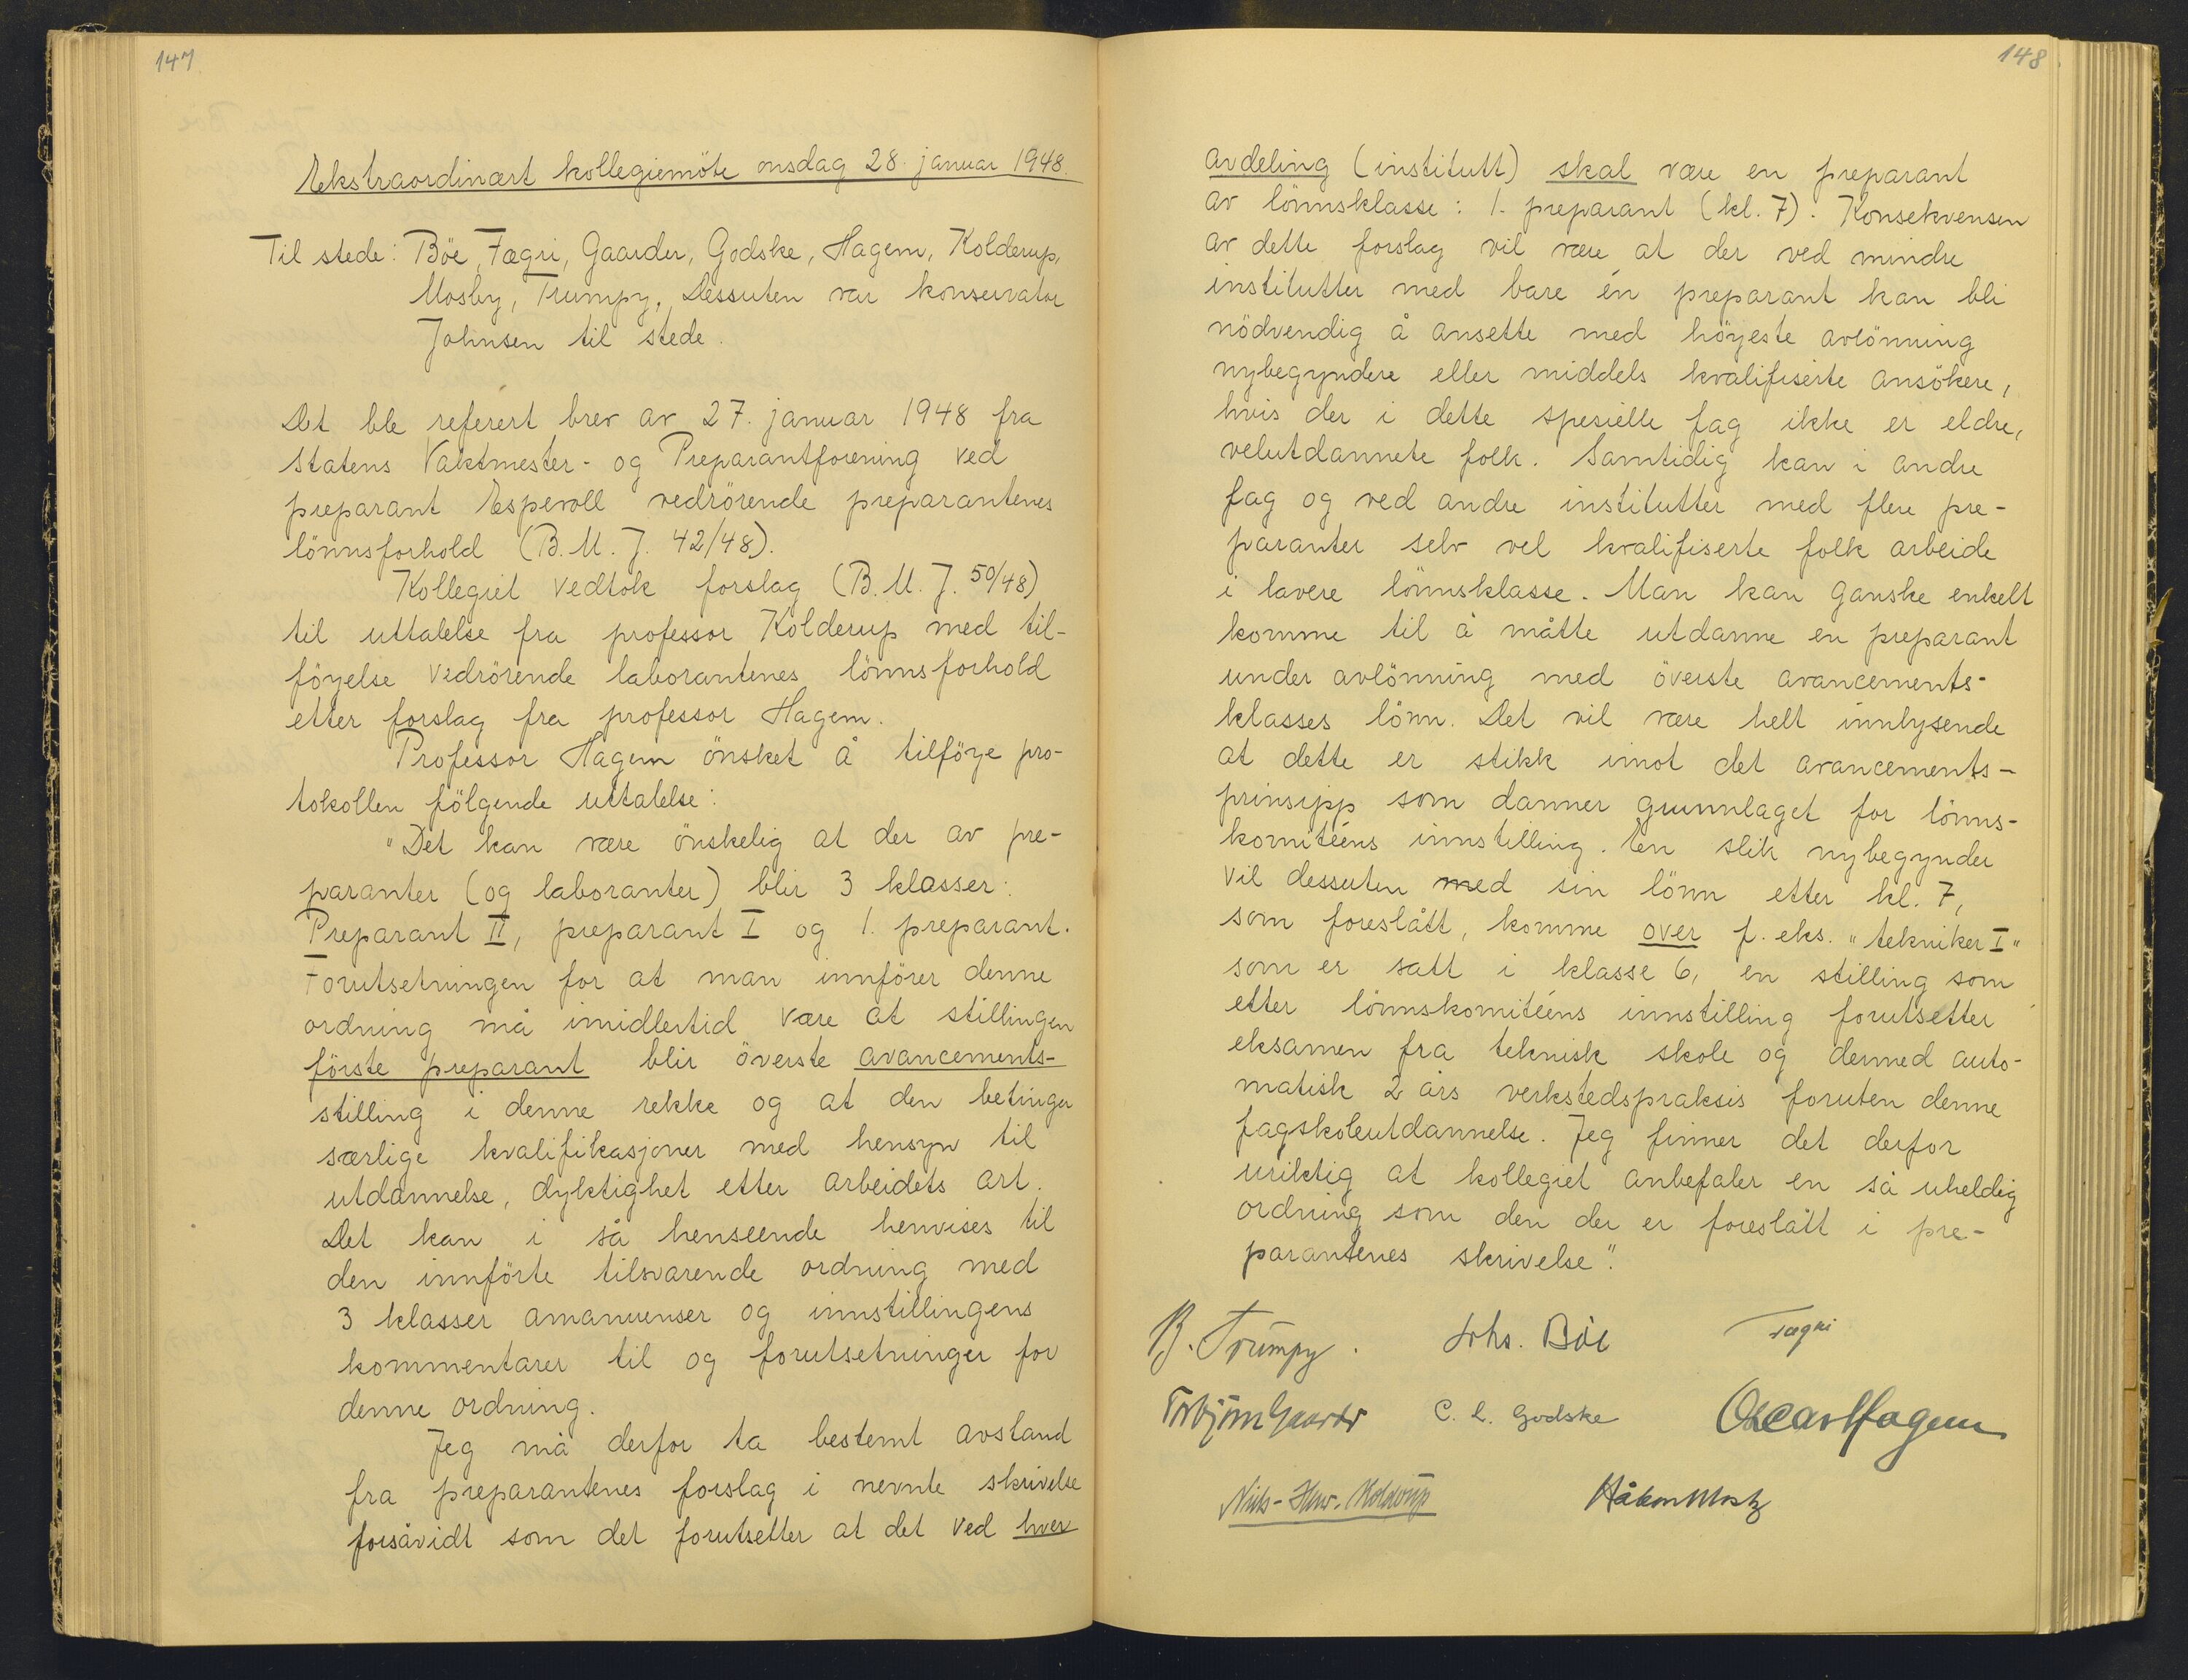 147
Ekstraordinært kollegiemöte onsdag 28. januar 1948.
Til stede: Böe, Fægri, Gaarder, Godske, Hagem, Kolderup,
Mosby, Trumpy. Dessuten var konservator
Johnsen til stede.
Det ble referert brev av 27. januar 1948 fra
Statens Vaktmester- og Preparantforening ved
preparant Espevoll vedrörende preparantenes
lönnsforhold (B.M.J. 42/48).
Kollegiet vedtok forslag (B.M.J. 50/48)
til uttalelse fra professor Kolderup med til-
föyelse vedrörende laborantenes lönnsforhold
etter forslag fra professor Hagem.
Professor Hagem önsket å tilföye pro-
tokollen fölgende uttalelse:
"Det kan være önskelig at der av pre-
paranter (og laboranter) blir 3 klasser:
Preparant II, preparant I og 1. preparant.
Forutsetningen for at man innförer denne
ordning må imidlertid være at stillingen
förste preparant blir överste avancements-
stilling i denne rekke og at den betinger
særlige kvalifikasjoner med hensyn til
utdannelse, dyktighet etter arbeidets art.
Det kan i så henseende henvises til
den innförte tilsvarende ordning med
3 klasser amanuenser og innstillingens
kommentarer til og forutsetninger for
denne ordning.
Jeg må derfor ta bestemt avstand
fra preparantenes forslag i nevnte skrivelse
forsåvidt som det forutsetter at det ved hver
148
avdeling (institutt) skal være en preparant
av lönnsklasse: 1. preparant (kl. 7). Konsekvensen
av dette forslag vil være at der ved mindre
institutter med bare én preparant kan bli
nödvendig å ansette med höyeste avlönning
nybegyndere eller middels kvalifiserte ansökere,
hvis der i dette spesielle fag ikke er eldre,
velutdannete folk. Samtidig kan i andre
fag og ved andre institutter med flere pre-
paranter selv vel kvalifiserte folk arbeide
i lavere lönnsklasse. Man kan ganske enkelt
komme til å måtte utdanne en preparant
under avlönning med överste avancements-
klasses lönn. Det vil være helt innlysende
at dette er stikk imot det avancements-
prinsipp som danner grunnlaget for lönns-
komitéens innstilling. En slik nybegynder
vil dessuten med sin lönn etter kl. 7,
som foreslått, komme over f. eks. "tekniker I"
som er satt i klasse 6, en stilling som
etter lönnskomitéens innstilling forutsetter
eksamen fra teknisk skole og dermed auto-
matisk 2 års verkstedspraksis foruten denne
fagskoleutdannelse. Jeg finner det derfor
uriktig at kollegiet anbefaler en så uheldig
ordning som den der er foreslått i pre-
parantenes skrivelse."
B. Trumpy. Johs. Böe Fægri
Torbjörn Gaarder C. L. Godske Oscar Hagem
Niels-Henr. Kolderup Håkon Mosby